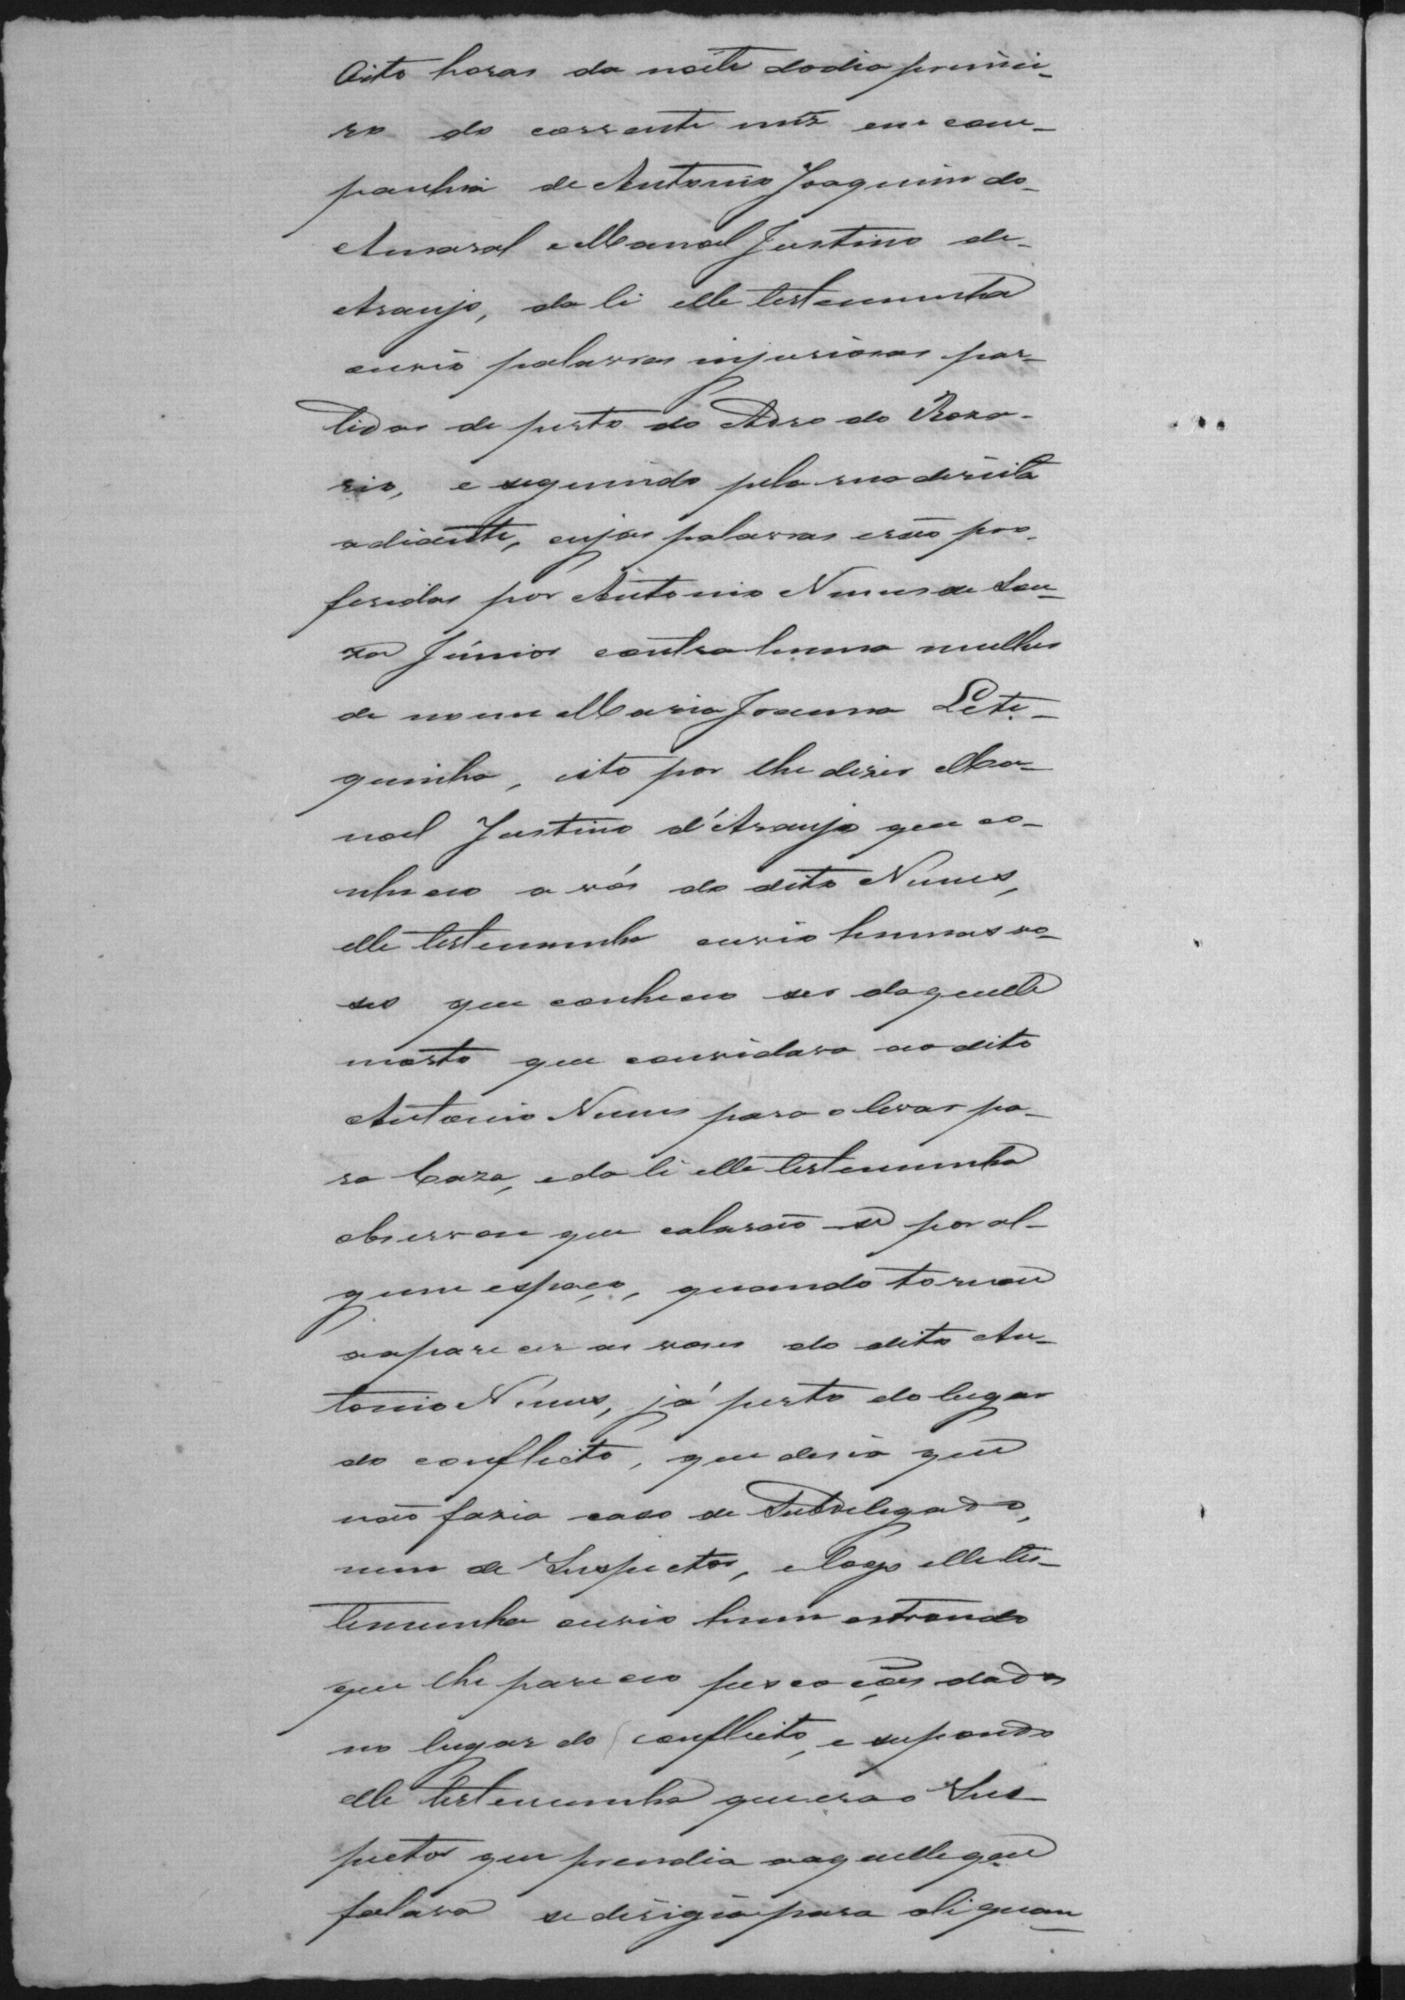 Oito horas da noite do dia primei-
ro do corrente mês em com-
panhia de Antonio Joaquim do
Amaral e Manoel Justino de
Araujo, da li elle testemunha
ouvio palavras injuriosas par-
tidas de perto do Adro do Roza-
rio, e seguindo pela rua direita
adiante, cujas palavras erão pro-
feridas por Antonio Nunes de Sou-
za Júnior contra huma mulher
de nome Maria Joanna Lete-
guinha, isto por lhe dizer Ma-
noel Justino d'Araujo que co-
nheceo a vós do dito Nunes,
elle testemunha ouvio humas vo-
ses que conheceo ser daquelle
morto que convidava ao dito
Antonio Nunes para o levar pa-
ra Caza, e da li elle testemunha
observou que calarão-se por al-
gum espaço, quando tornou
a aparecer as vozes do dito An-
tonio Nunes, já perto do lugar
do conflicto, que desia que
não fazia caso de Subdelegado,
nem de Inspector, e logo elle tes-
temunha ouvio hum estrondo
que lhe pareceo pescoções dados
no lugar do conflicto, e supondo
elle testemunha que era o Ins-
pector que prendia a aquelle que
falava se dirigio para ali quan-